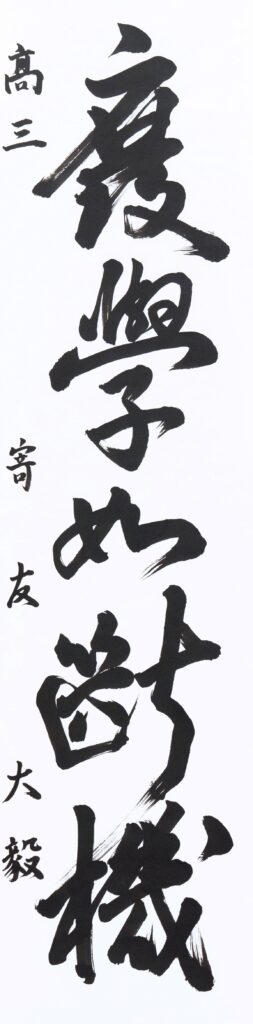 廢學如斷機
高三 寄友大毅